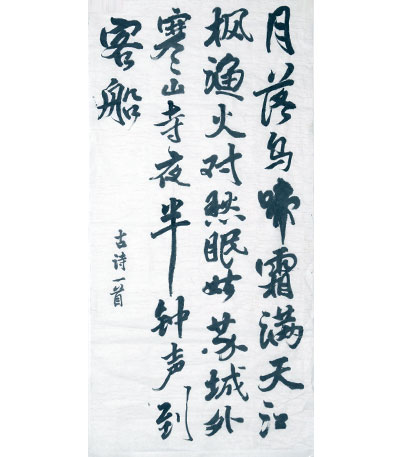 月落乌啼霜满天江
枫渔火对愁眠姑苏城外
寒山寺夜半钟声到
客船
古诗一首